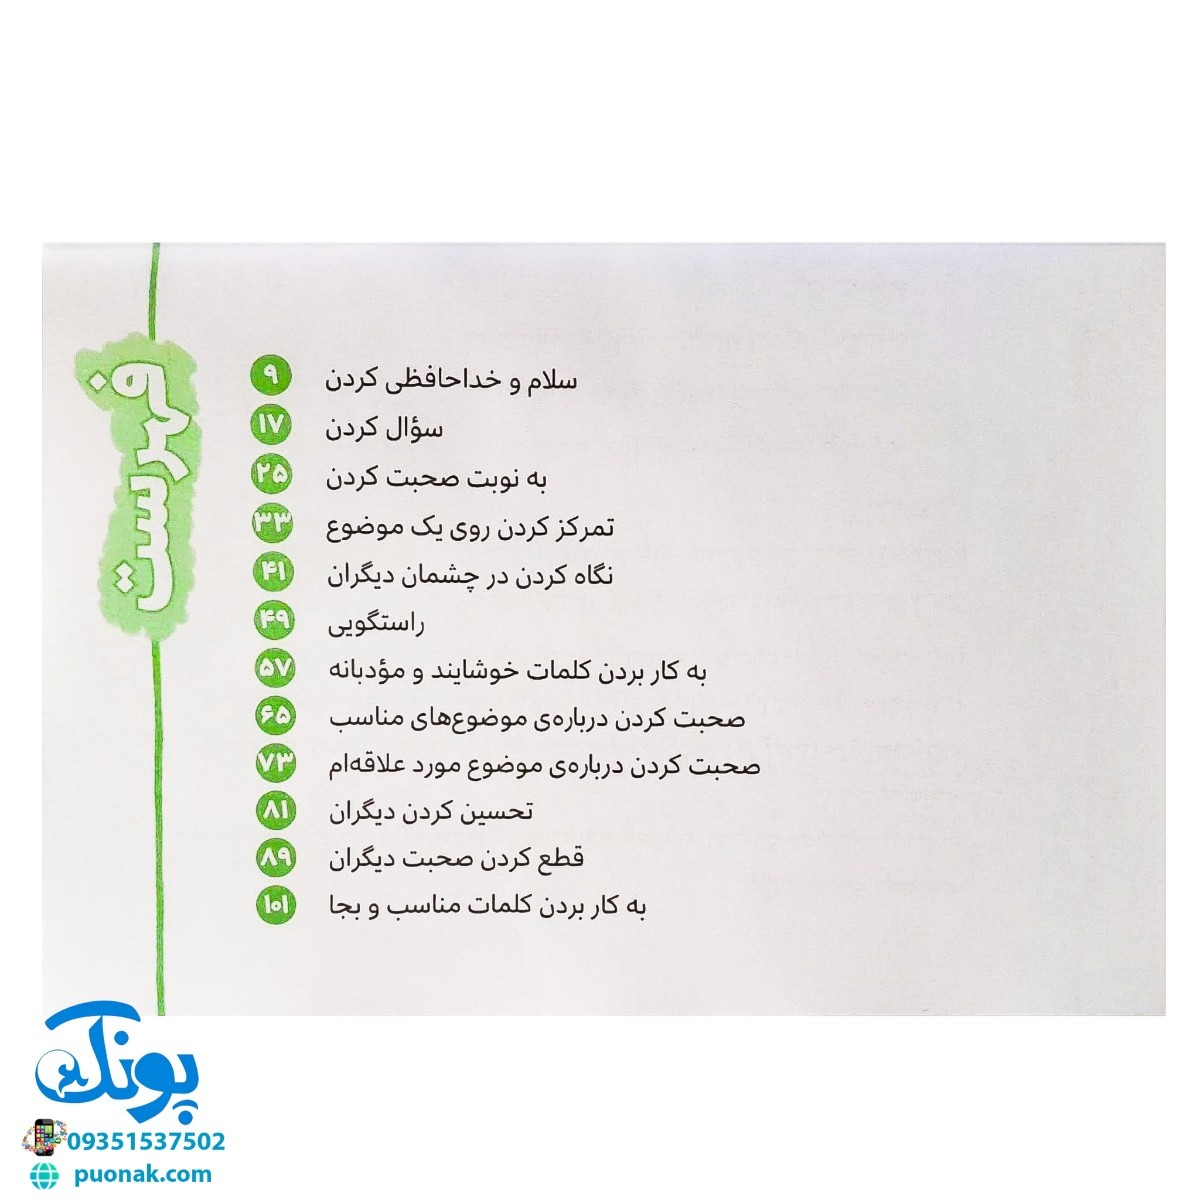 فهرست
سلام و خداحافظی کردن ۹
سؤال کردن ۱۷
به نوبت صحبت کردن ۲۵
تمرکز کردن روی یک موضوع ۳۳
نگاه کردن در چشمان دیگران ۴۱
راستگویی ۴۹
به کار بردن کلمات خوشایند و مؤدبانه ۵۷
صحبت کردن درباره‌ی موضوع‌های مناسب ۶۵
صحبت کردن درباره‌ی موضوع مورد علاقه‌ام ۷۳
تحسین کردن دیگران ۸۱
قطع کردن صحبت دیگران ۸۹
به کار بردن کلمات مناسب و بجا ۱۰۱
پونک
09351537502
puonak.com